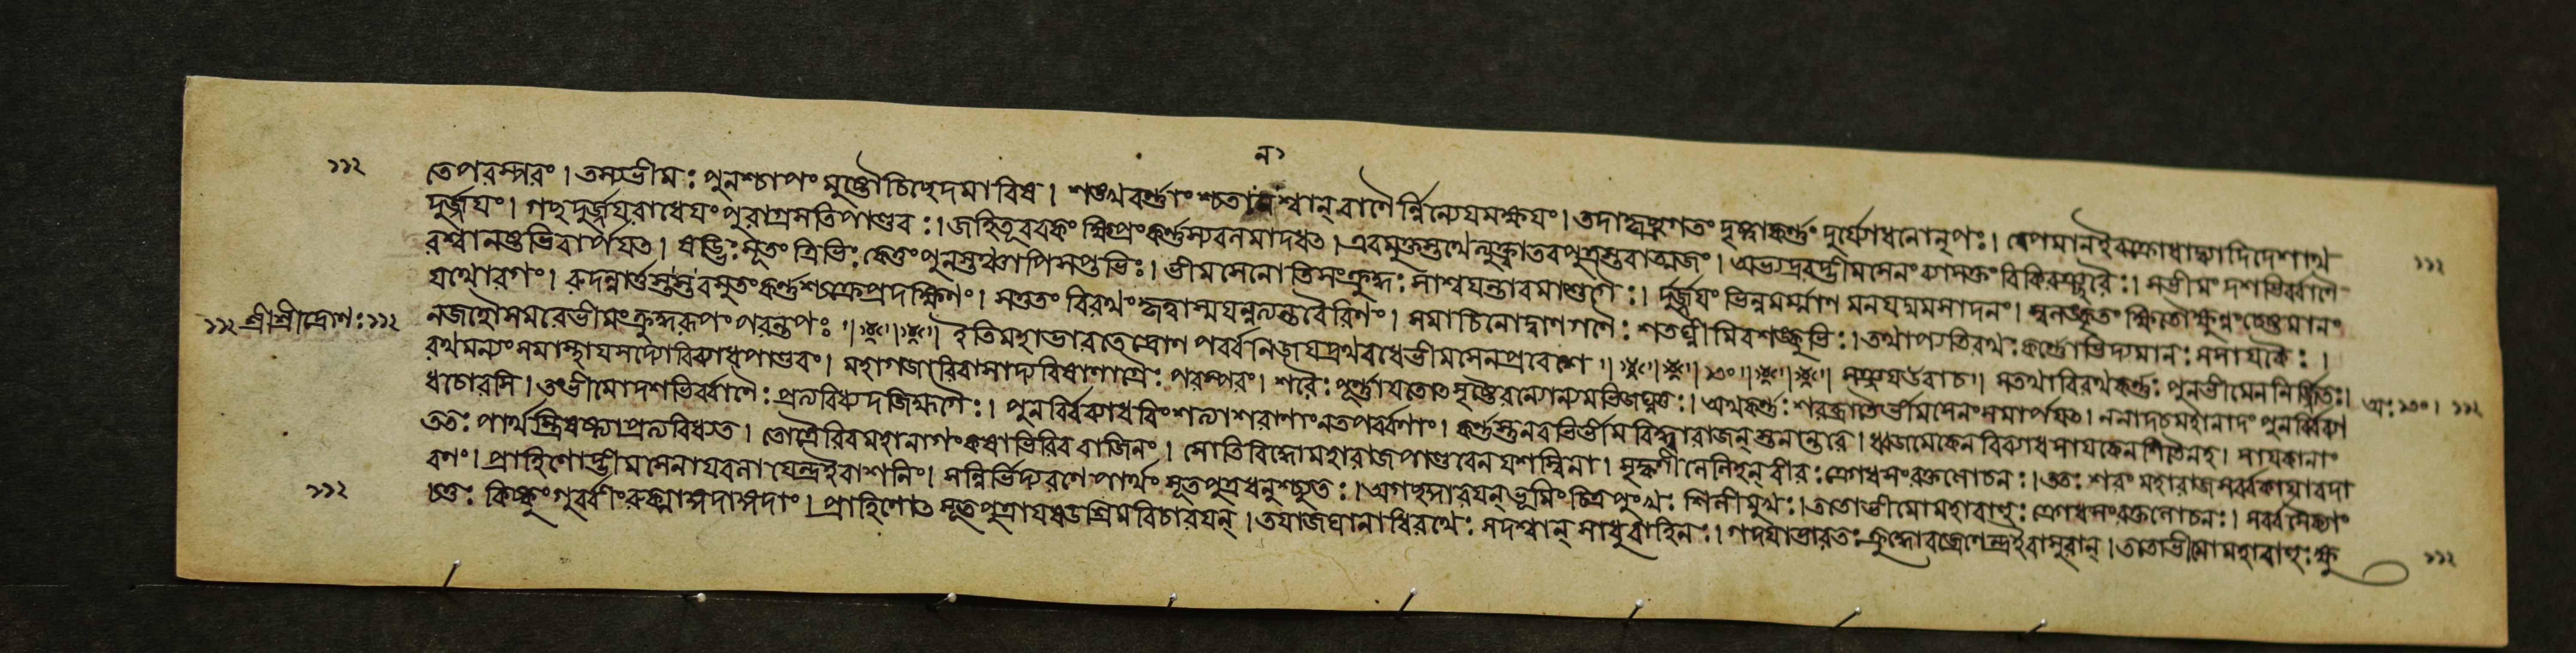 ন১
১১২ তেপরস্পরং। তস্যভীমঃ পুনশ্চাপং মুষ্টৌচিচ্ছেদমারিষ। শঙ্খবর্ণ্ণাংশ্চতানশ্বান্ বাণৈর্ন্নিন্যেযমক্ষয়ং। তদাকৃচ্ছ্রগতং দৃষ্ট্বাকর্ণ্ণং দুর্যোধনোনৃপঃ। বেপমানইবক্রোধাদ্ব্যাদিদেশাথ
দুর্জ্জয়ং। গচ্ছদুর্জ্জয়রাধেয়ং পুরাগ্রসতিপাণ্ডবঃ। জহিতূবরকং ক্ষিপ্রং কর্ণ্ণস্যবলমাদধৎ। এবমুক্তস্তথেত্যুক্ত্বাতবপুত্রস্তবাত্মজং। অভ্যদ্রবদ্ভীমসেনং ব্যাসক্তং বিকিরঞ্ছরৈঃ। সভীমং দশভির্ব্বাণৈ ১১২
রশ্বানষ্টভিরার্পয়ৎ। ষড্ভিঃ সূতং ত্রিভিঃ কেতুং পুনস্তঞ্চাপিসপ্তভিঃ। ভীমসেনোতিসংক্রুদ্ধঃ সাশ্বয়ন্তারমাশুগৈঃ। দুর্জ্জয়ং ভিন্নমর্ম্মাণমনয়দ্যমসাদনং। স্বলঙ্কৃতং ক্ষিতৌক্ষুণ্নং চেষ্টমানং
যথোরগং। রুদন্নার্ত্তস্তবসুতং কর্ণ্ণশ্চক্রেপ্রদক্ষিণং। সতুতং বিরথং কৃত্বাস্ময়ন্নত্যন্তবৈরিণং। সমাচিনোদ্বাণগণৈঃ শতঘ্নীমিবশঙ্কুভিঃ। তথাপ্যতিরথঃ কর্ণ্ণোভিদ্যমানঃ সসায়কৈঃ।
১১২ শ্রীশ্রীদ্রোণঃ ১১২ নজহৌসমরেভীমংক্রুদ্ধরূপং পরন্তপঃ ॥ ॥ ॥ ইতিমহাভারতেদ্রোণপর্ব্বণিজয়দ্রথবধেভীমসেনপ্রবেশে ॥ ॥ ॥ ১৩০ ॥ ॥ ॥ সঞ্জয়উবাচ॥ সতথাবিরথকর্ণ্ণঃ পুনর্ভীমেননির্জ্জিতঃ। অঃ ১৩০। ১১২
রথমন্যং সমাস্থায়সদ্যোবিব্যাধপাণ্ডবং। মহাগজাবিবাসাদ্যবিষাণাগ্রৈঃ পরস্পরং। শরৈঃ পূর্ণ্ণায়তোৎসৃষ্টৈরন্যোন্যমভিজঘ্নতুঃ। অথকর্ণ্ণঃ শরব্রাতৈর্ভীমসেনং সমার্পয়ৎ। ননাদচমহানাদং পুনর্ব্বিব্যা
ধচোরসি। তংভীমোদশভির্ব্বাণৈঃ প্রত্যবিধ্যদজিহ্মগৈঃ। পুনর্ব্বিব্যাধবিংশত্যাশরাণাংনতপর্ব্বণাং। কর্ণ্ণস্তুনবভির্ভীমংবিদ্ধ্বারাজন্ স্তনান্তরে। ধ্বজমেকেনবিব্যাধসায়কেনশিতেনহ। সায়কানাং
ততঃ পার্থস্ত্রিষষ্ট্যাপ্রত্যবিধ্যত। তোত্রৈরিবমহানাগংকষাভিরিববাজিনং। সোতিবিদ্ধোমহারাজপাণ্ডবেনযশস্বিনা। সৃক্কণীলেলিহন্ বীরঃ ক্রোধসংরক্তলোচনঃ। ততঃ শরং মহারাজসর্ব্বকায়াবদা
রণং। প্রাহিণোদ্ভীমসেনায়বলায়েন্দ্রইবাশনিং। সনির্ভিদ্যরণে পার্থং সূতপুত্রধনুশ্চ্যুতঃ। অগচ্ছদ্দারয়ন্ ভূমিং চিত্রপুংখঃ শিলীমুখঃ। ততোভীমোমহাবাহুঃ ক্রোধসংরক্তলোচনঃ। সর্ব্বশৈক্যাং
১১২ চতুঃ কিষ্কুংগুর্ব্বীংরুক্মাঙ্গদাঙ্গদাং। প্রাহিণোৎ সূতপুত্রায়ষড়শ্রিমবিচারয়ন্। তয়াজঘানাধিরথেঃ সদশ্বান্ সাধুবাহিনঃ। গদয়াভারতঃ ক্রুদ্ধোবজ্রেণেন্দ্রইবাসুরান্। ততোভীমোমহাবাহুঃ ক্ষু ১১২